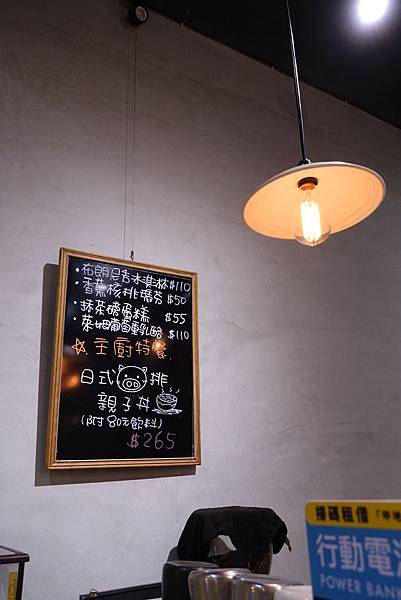 ・布朗尼杏木淇淋$110
・香蕉核桃瑪芬 $50
・抹茶磅蛋糕 $55
萊姆葡萄重乳酪 $110
☆主廚特餐
日式 排
親子丼
(附80元飲料)
$265
掃碼租借「甲地
行動電
POWER BANK